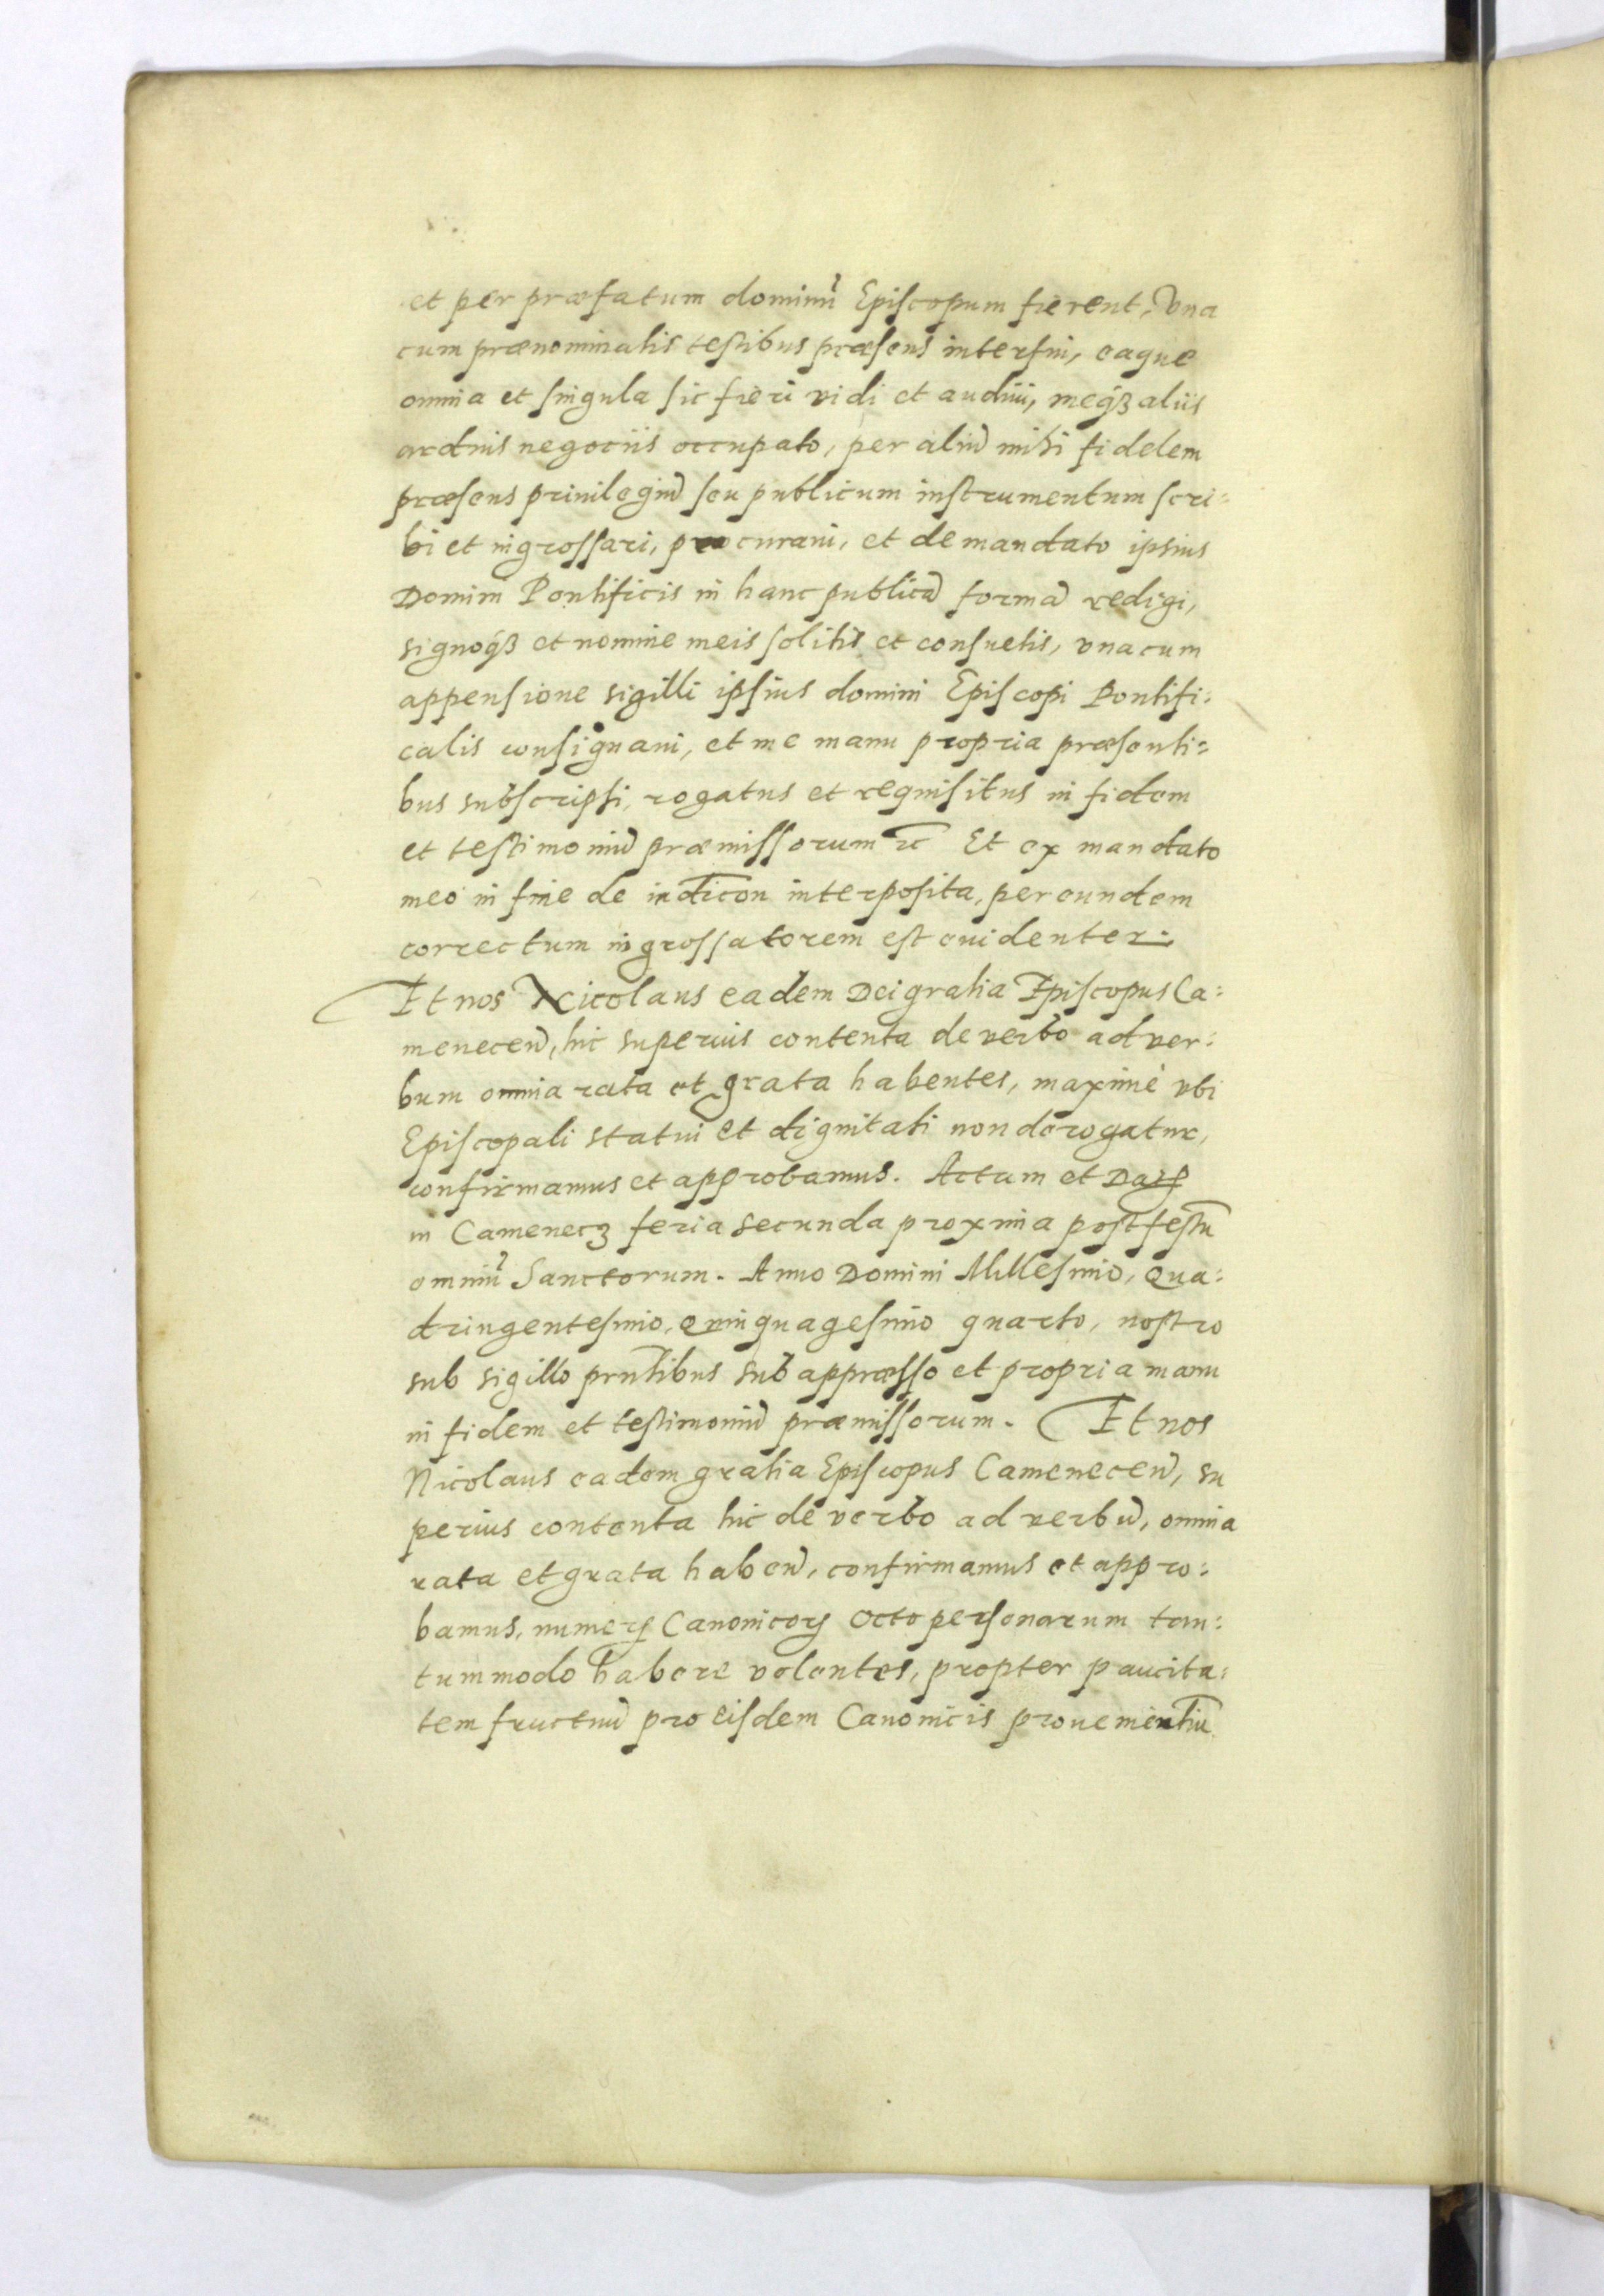 et per præfatum dominũ Episcopum fierent, Vna
cum prænominatis testibus præsens interfui, eaque
omnia et singula sic fieri vidi et audiui, meq́ꝫ aliis
arduis negociis occupato, per aliũ mihi fidelem
præsens priuilegiũ seu publicum instrumentum scri:
bi et ingrossari, procuraui, et de mandato ipsius
Domini Pontificis in hanc publicã formã redigi,
signoq́ꝫ et nomine meis solitis et consuetis, vna cum
appensione sigilli ipsius domini Episcopi Pontifi:
calis consignaui, et me manu propria præsenti:
bus subscripsi, rogatus et requisitus in fidem
et testimoniũ præmissorum ꝛc̃ Et ex mandato
meo in fine de indicon interposita, per eundem
correctum ingrossatorem est euidenter.
Et nos Nicolaus eadem Dei gratia Episcopus Ca:
menecen̄, hic superius contenta de verbo ad ver:
bum omnia rata et grata habentes, maximè vbi
Episcopali statui et dignitati non derogatur,
confirmamus et approbamus. Actum et
in Camenecz feria secunda proxima post festũ
omniũ Sanctorum. Anno Domini Millesimo, Qua:
dringentesimo, Quinquagesimo quarto, nostro
sub sigillo prn̄tibus subappræsso et propria manu
in fidem et testimoniũ præmissorum. Et nos
Nicolaus eadem gratia Episcopus Camenecen̄, su
perius contenta hic de verbo ad verbũ, omnia
rata et grata haben̄, confirmamus et appro:
bamus, numerꝫ Canonicorꝫ Octo personarum tan:
tummodo habere volentes, propter paucita:
tem fructuũ pro eisdem Canonicis prouenientiũ